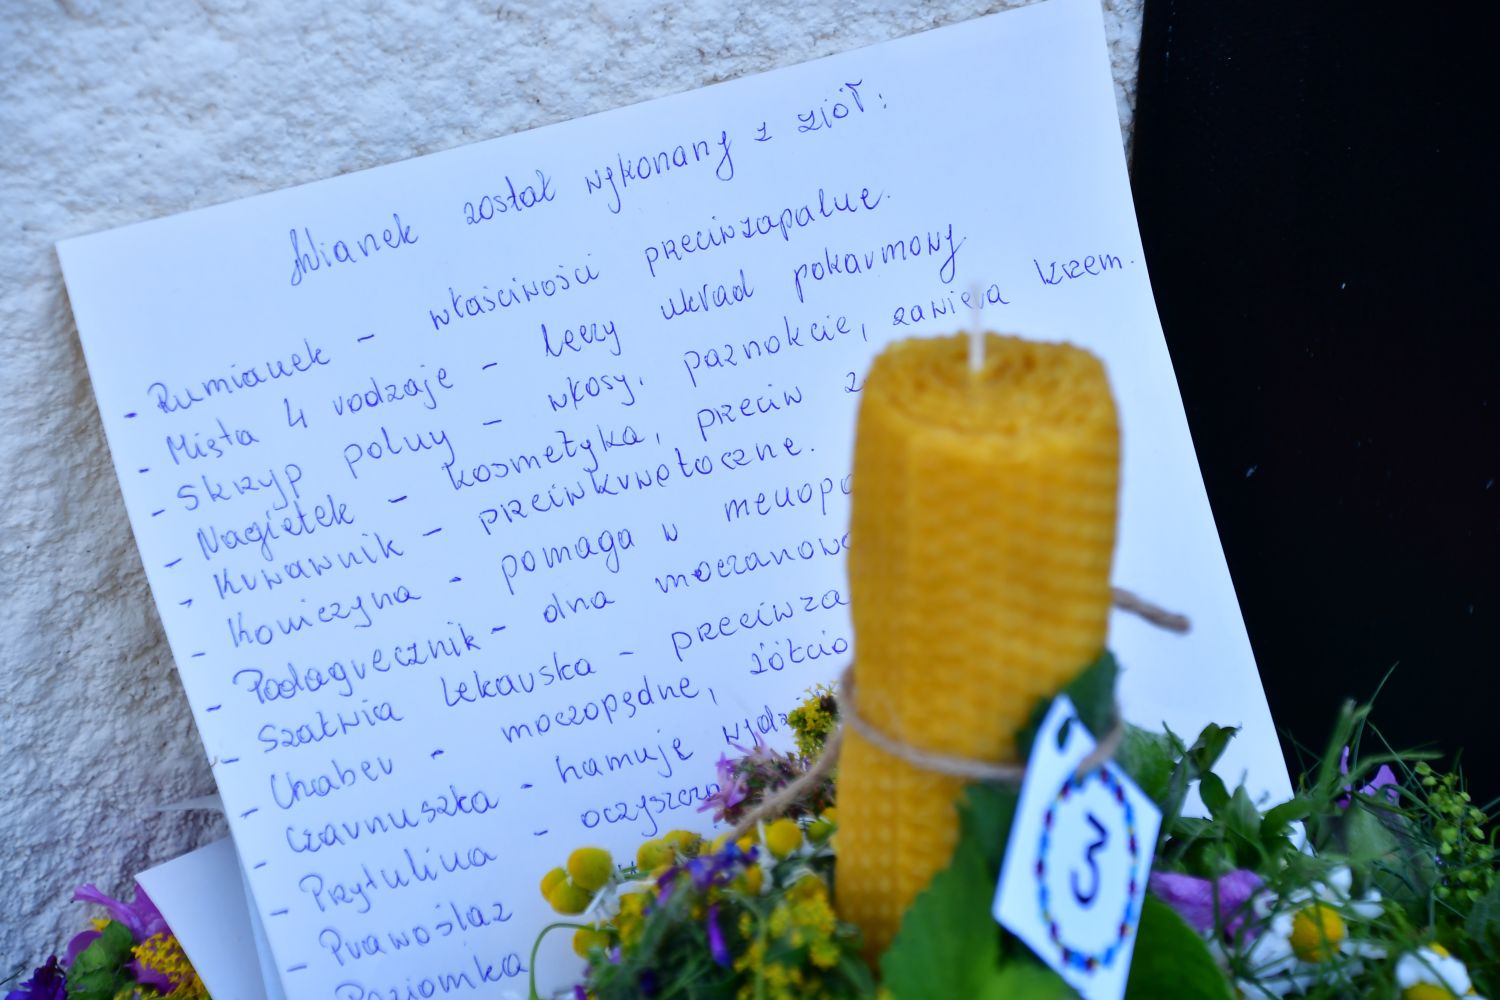 Wianek został wykonany z ziół:
- Rumianek - właściwości przeciwzapalne.
- Mięta 4 rodzaje - leczy układ pokarmowy
- Skrzyp polny - włosy, paznokcie, zawiera krzem.
- Nagietek - kosmetyka, przeciw
- Krwawnik - przeciwkrwotoczne.
- Koniczyna - pomaga w
- Podagrecznik - dna
- Szałwia lekarska -
- Chaber - moczopędne,
- Czarnuszka - hamuje
- Przytulina -
- Prawoślaz
Poziomka
3